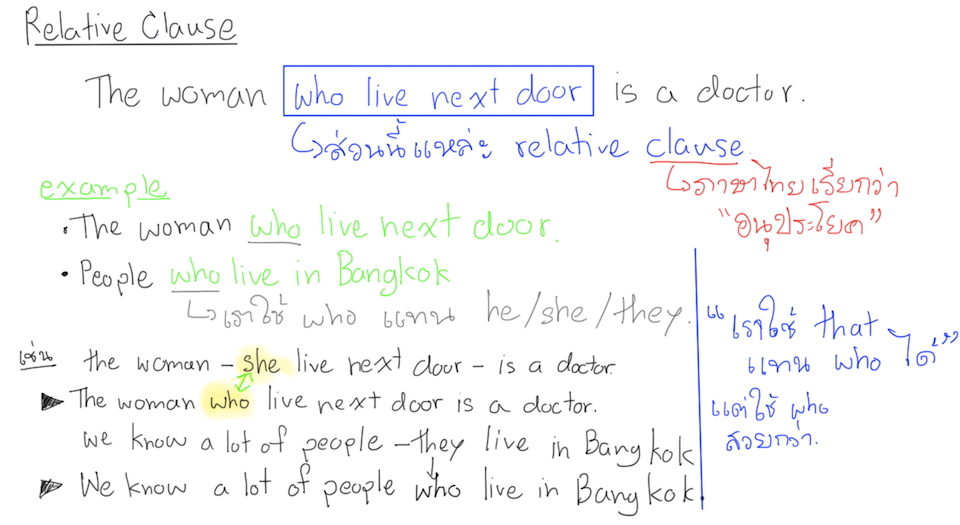 Relative Clause
The woman who live next door is a doctor.
↳ ส่วนนี้แหล่ะ relative clause
↳ ภาษาไทยเรียกว่า
"อนุประโยค"
example
• The woman who live next door.
• People who live in Bangkok
↳ เราใช้ who แทน he/she/they.
เช่น the woman – she live next door – is a doctor
► The woman who live next door is a doctor.
we know a lot of people – they live in Bangkok
► We know a lot of people who live in Bangkok.
"เราใช้ that
แทน who ได้"
แต่ใช้ who
สวยกว่า.